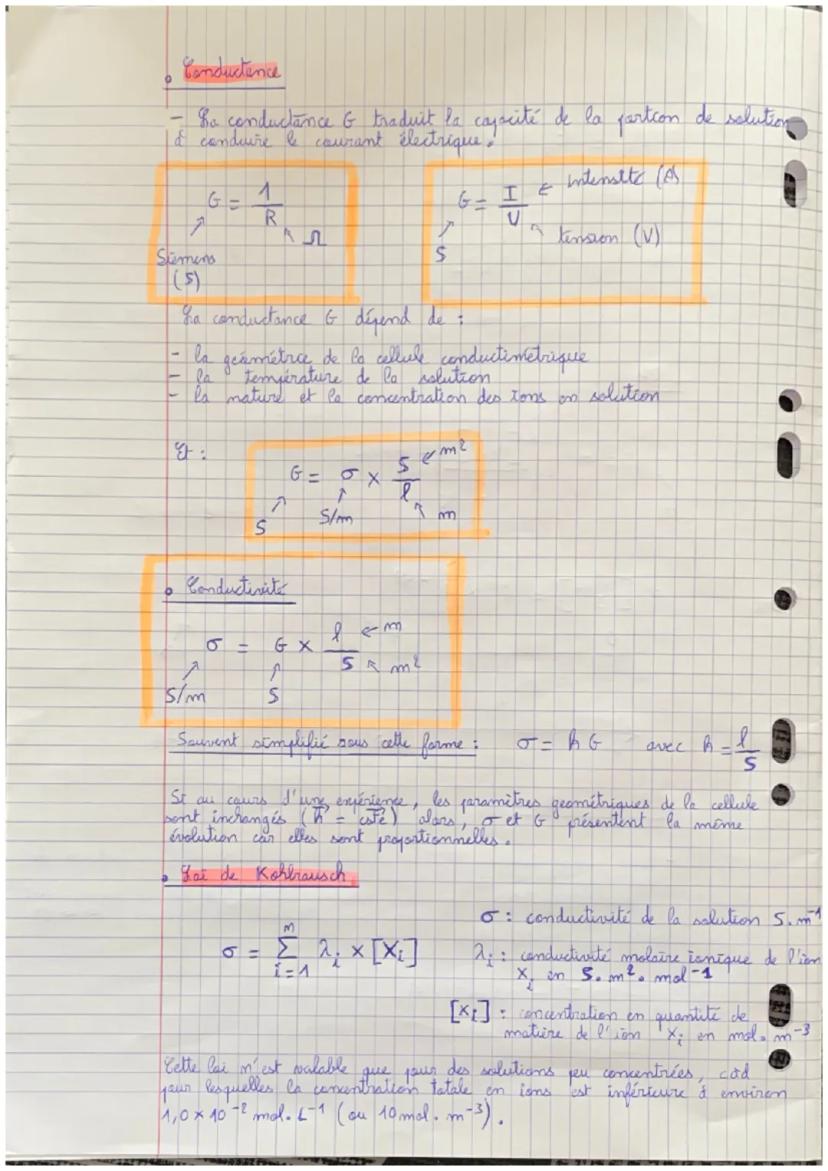 • Conductance
- La conductance G traduit la capacité de la portion de solution
à conduire le courant électrique.
G = 1/R
Ω
Siemens
(S)
G = I/U
intensité (A)
tension (V)
S
La conductance G dépend de :
- la géométrie de la cellule conductimétrique
- la température de la solution
- la nature et la concentration des ions en solution
Et :
G = σ × S/l
m²
S
S/m
m
• Conductivité
σ = G × l/S
m
m²
S/m
S
Souvent simplifié sous cette forme : σ = k G avec k = l/S
Si au cours d'une expérience, les paramètres géométriques de la cellule
sont inchangés (k = cste) alors, σ et G présentent la même
évolution car elles sont proportionnelles.
• Loi de Kohlrausch
σ = Σ n i=1 λi × [Xi]
σ : conductivité de la solution S.m-1
λi : conductivité molaire ionique de l'ion
Xi en S.m².mol-1
[Xi] : concentration en quantité de
matière de l'ion Xi en mol.m-3
Cette loi n'est valable que pour des solutions peu concentrées, càd
pour lesquelles la concentration totale en ions est inférieure à environ
1,0 × 10-2 mol.L-1 (ou 10 mol.m-3).